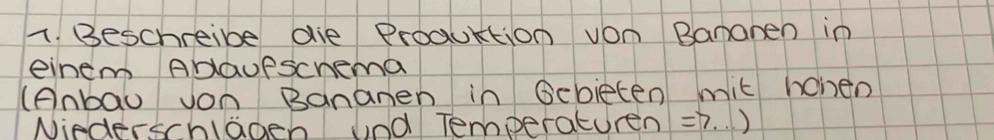 1. Beschreibe die Produktion von Bananen in
einem Ablaufschema
(Anbau von Bananen in Gebieten mit hohen
Niederschlägen und Temperaturen =>...)